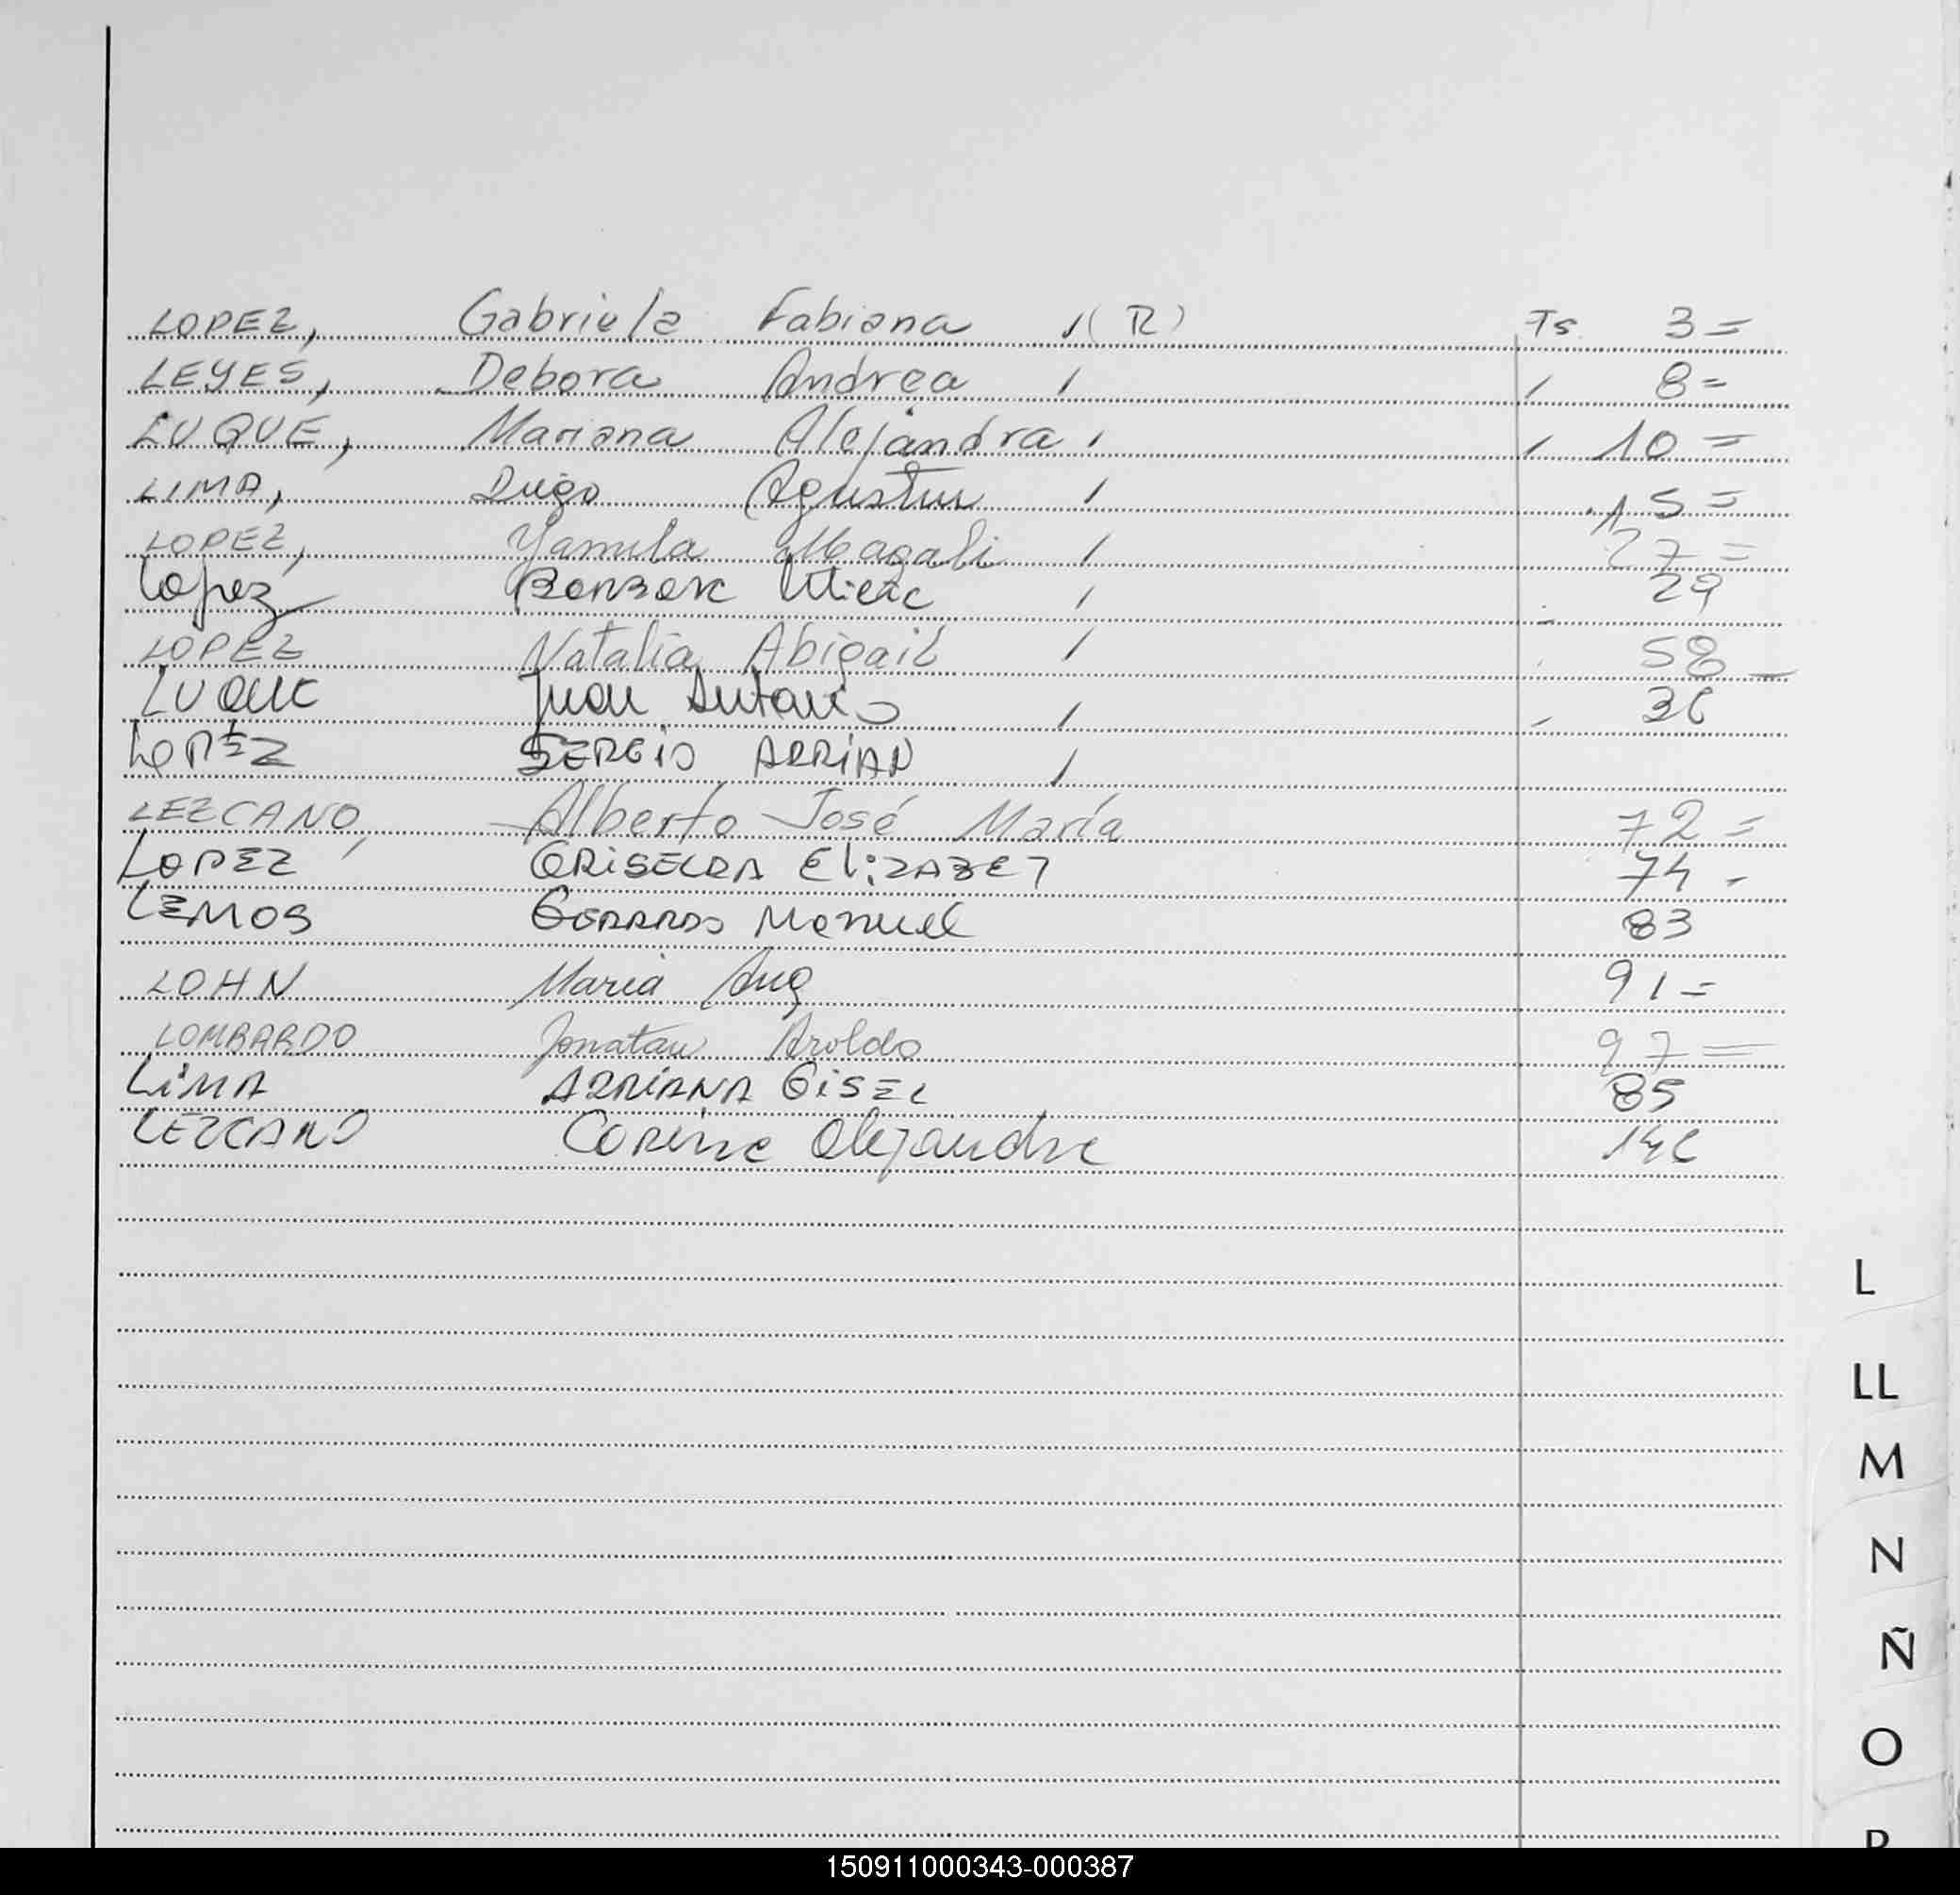 LOPEZ, Gabriela Fabiana ,(R) Ts 3=
LEYES, Debora Andrea , , 8=
LUQUE, Mariana Alejandra , , 10=
LIMA, Diego Agustin , 15=
LOPEZ, Yamila Magali , 27=
Lopez , 29
LOPEZ Natalia Abigail , 58
LUQUE Juan Antonio , 36
LOPEZ SERGIO ADRIAN ,
LEZCANO, Alberto José María 72=
LOPEZ GRISELDA ELIZABET 74-
LEMOS GERARDO Manuel 83
LOHN Maria Ana 91=
LOMBARDO Jonatan Aroldo 97=
LIMA ADRIANA GISEL 85
LEZCANO Corina Alejandra 146
L
LL
M
N
Ñ
O
P
150911000343-000387